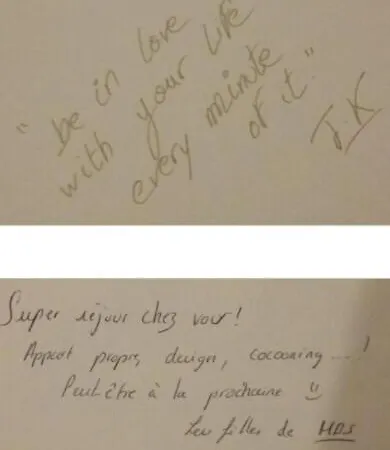 "be in love
with your Life
every minute
of it."
J.K
Super séjour chez vous!
Appart propre, design, cocooning....!
Peut être à la prochaine
Les filles de MDS